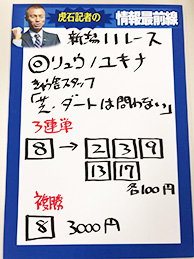 虎石記者の
情報最前線
新潟11レース
◎リュウノユキナ
きゅう舎スタッフ
「芝・ダートは問わない」
3連単
8→2 3 9
13 17
各100円
複勝
8 3000円